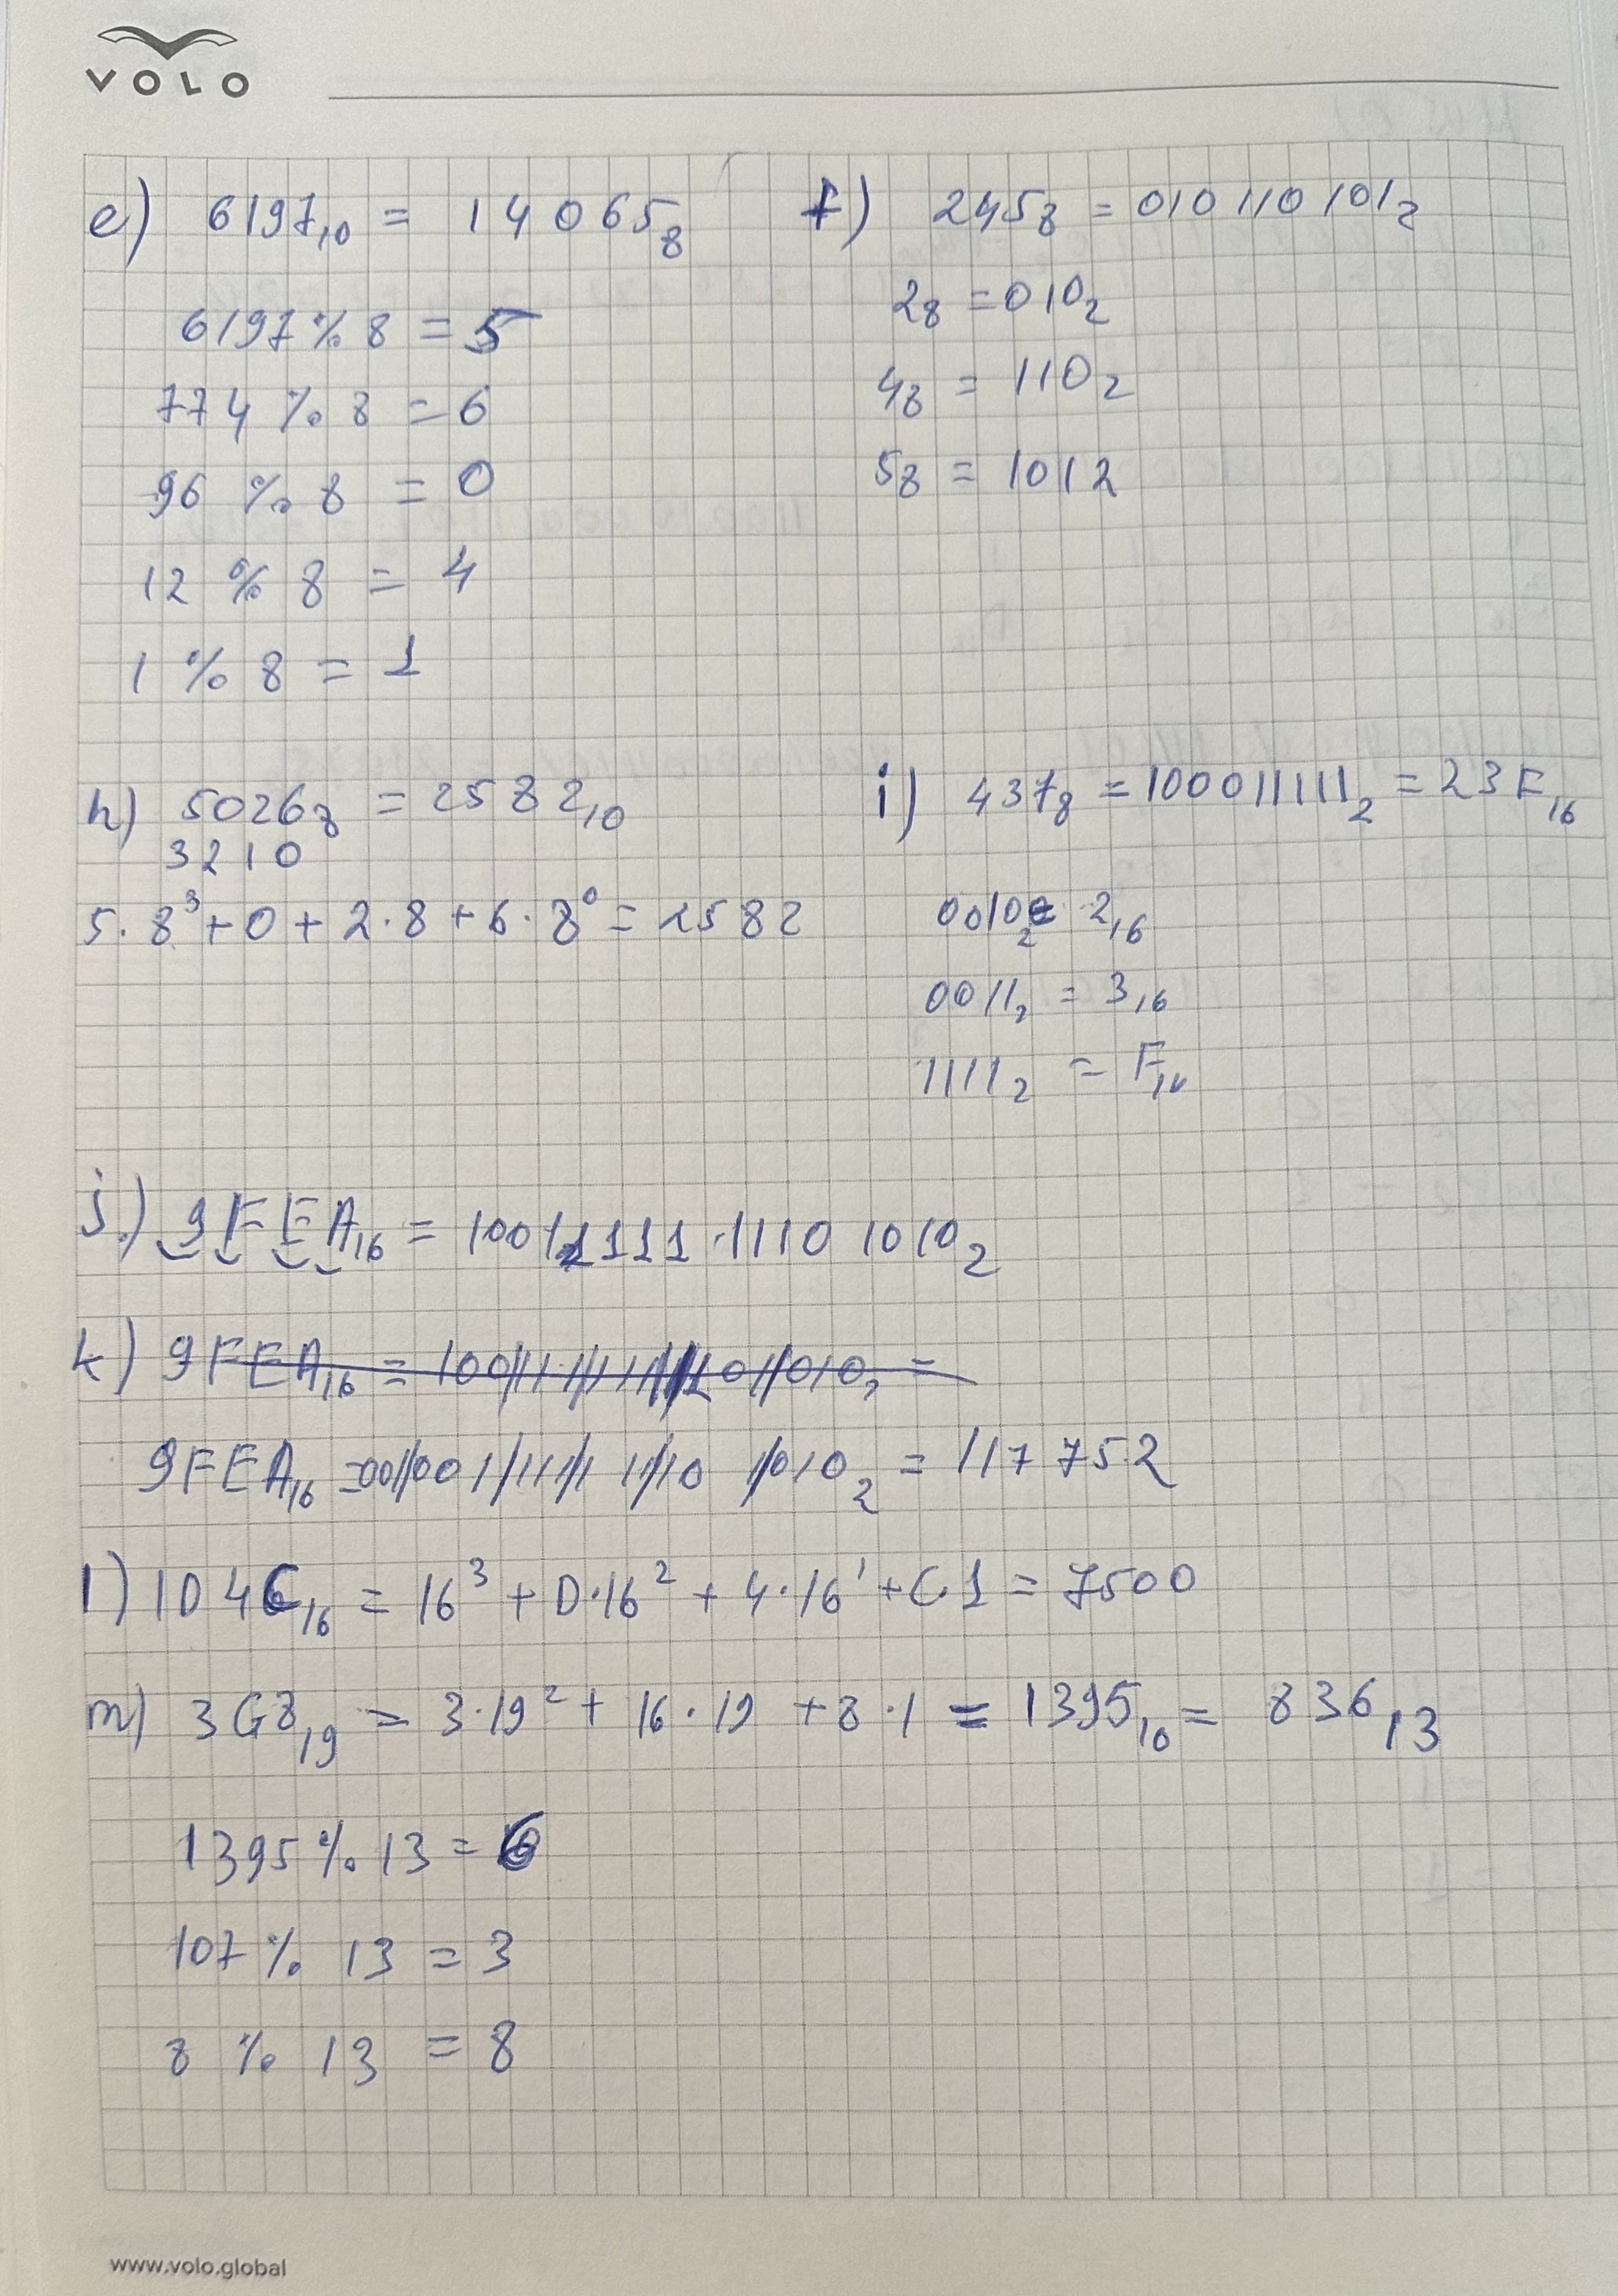 VOLO
e) 6197₁₀ = 14065₈
6197 % 8 = 5
774 % 8 = 6
96 % 8 = 0
12 % 8 = 4
1 % 8 = 1
f) 245₈ = 010 110 101₂
2₈ = 010₂
4₈ = 110₂
5₈ = 101₂
h) 5026₈ = 2582₁₀
3210
5·8³ + 0 + 2·8 + 6·8⁰ = 2582
i) 437₈ = 100011111₂ = 23F₁₆
0010₂ 2₁₆
0011₂ = 3₁₆
1111₂ = F₁₆
j.) 9FEA₁₆ = 1001 1111 1110 1010₂
k) 9FEA₁₆ =
9FEA₁₆ = 001001111 1110 1010₂ = 117752
l) 1D4C₁₆ = 16³ + D·16² + 4·16¹ + C·1 = 7500
m) 3G8₁₉ = 3·19² + 16·19 + 8·1 = 1395₁₀ = 836₁₃
1395 % 13 = 6
107 % 13 = 3
8 % 13 = 8
www.volo.global